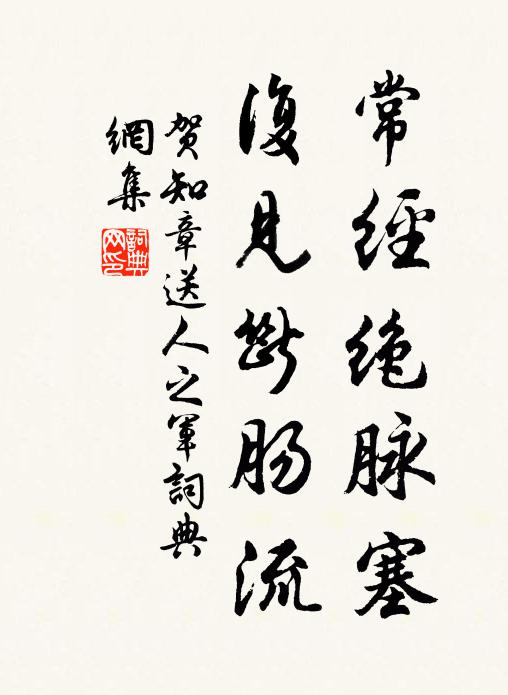 常經絶脉塞
復見斷肠流
賀知章送人之軍詞典
網集
詞典网印